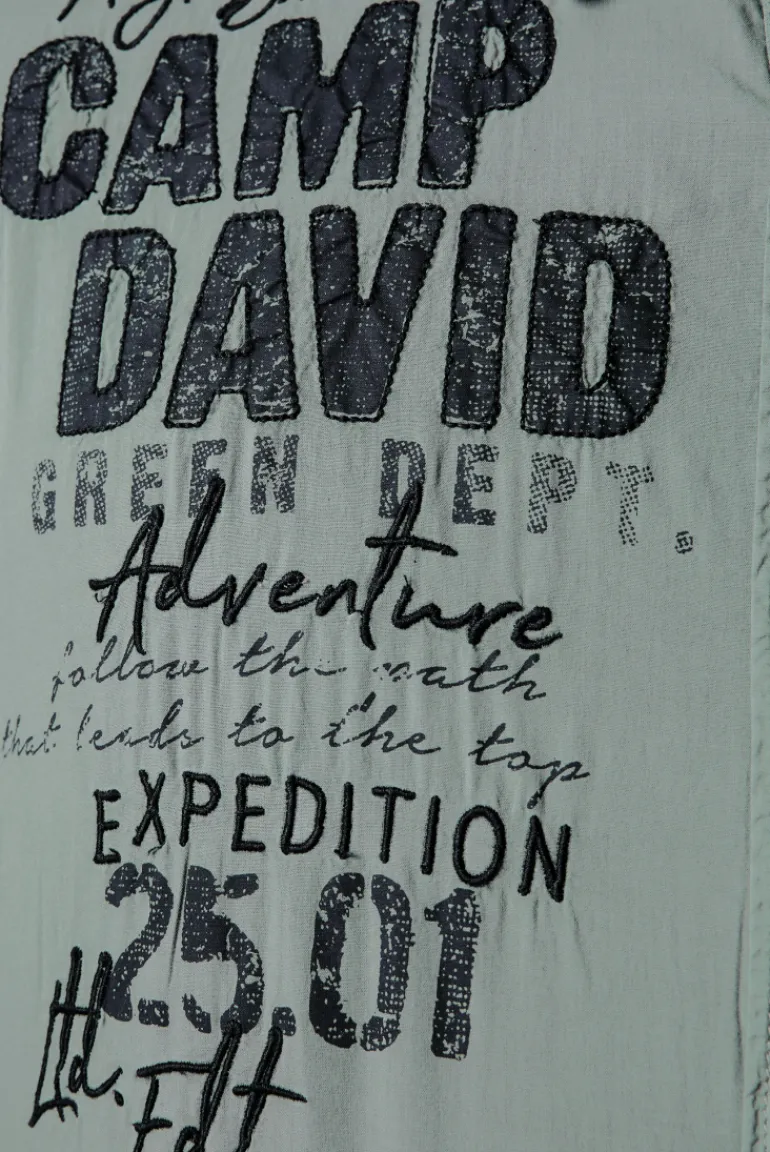 CAMP
DAVID
GREEN DEPT.
Adventure
follow the path
that leads to the top
EXPEDITION
25.01
Ltd. Edt